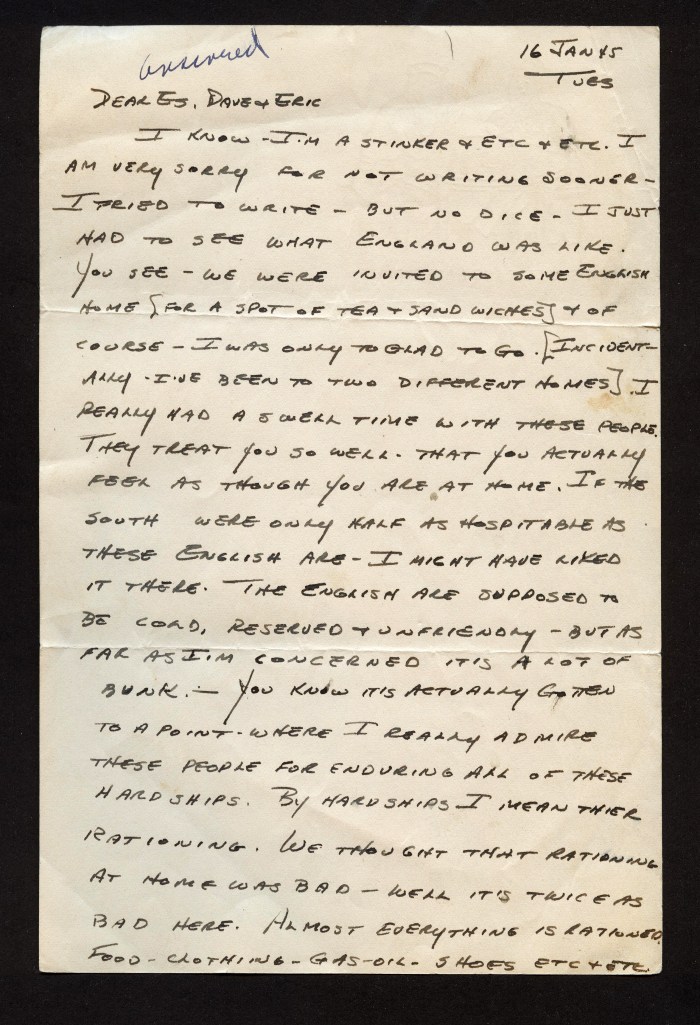 answered
16 JAN 45
TUES
DEAR ES, DAVE & ERIC
I KNOW - I'M A STINKER & ETC & ETC. I
AM VERY SORRY FOR NOT WRITING SOONER -
I TRIED TO WRITE - BUT NO DICE - I JUST
HAD TO SEE WHAT ENGLAND WAS LIKE.
YOU SEE - WE WERE INVITED TO SOME ENGLISH
HOME [FOR A SPOT OF TEA & SANDWICHES] & OF
COURSE - I WAS ONLY TO GLAD TO GO. [INCIDENT-
ALLY - I'VE BEEN TO TWO DIFFERENT HOMES]. I
REALLY HAD A SWELL TIME WITH THESE PEOPLE.
THEY TREAT YOU SO WELL - THAT YOU ACTUALLY
FEEL AS THOUGH YOU ARE AT HOME. IF THE
SOUTH WERE ONLY HALF AS HOSPITABLE AS
THESE ENGLISH ARE - I MIGHT HAVE LIKED
IT THERE. THE ENGLISH ARE SUPPOSED TO
BE COLD, RESERVED & UNFRIENDLY - BUT AS
FAR AS I'M CONCERNED IT'S A LOT OF
BUNK. - YOU KNOW IT'S ACTUALLY GOTTEN
TO A POINT - WHERE I REALLY ADMIRE
THESE PEOPLE FOR ENDURING ALL OF THESE
HARDSHIPS. BY HARDSHIPS I MEAN THIER
RATIONING. WE THOUGHT THAT RATIONING
AT HOME WAS BAD - WELL IT'S TWICE AS
BAD HERE. ALMOST EVERYTHING IS RATIONED.
FOOD - CLOTHING - GAS - OIL - SHOES ETC & ETC.